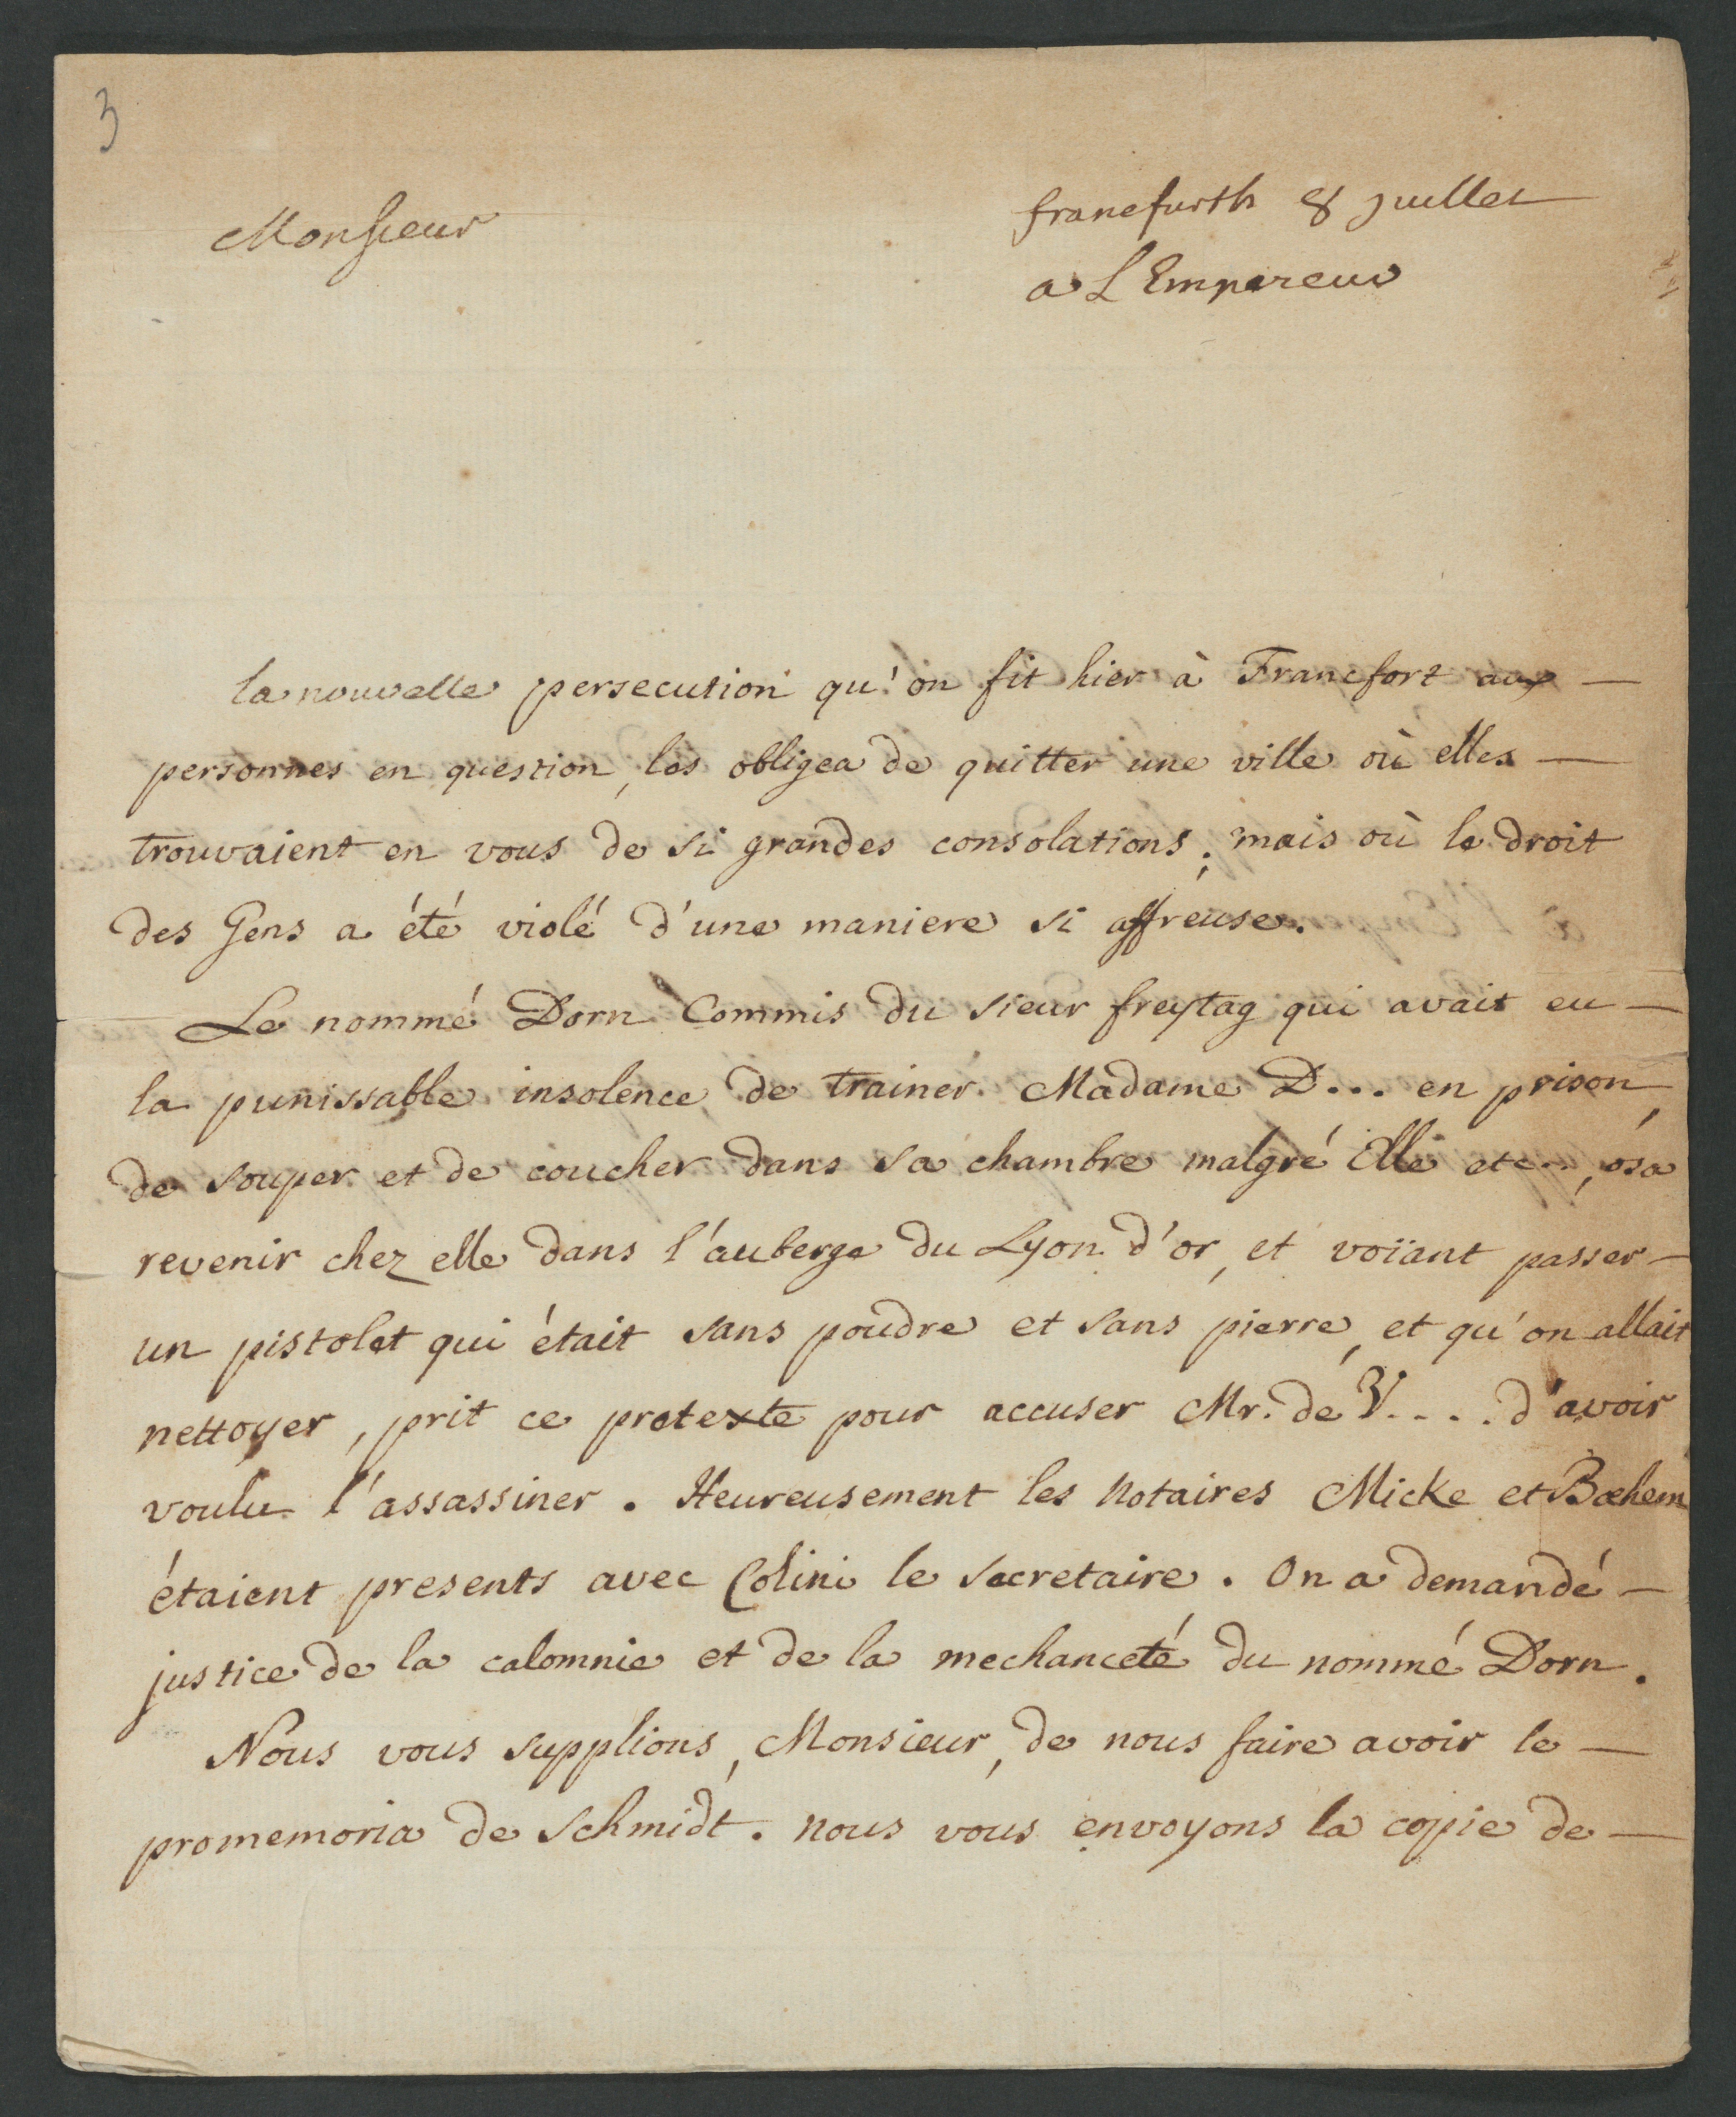 3
Monsieur
francfurth 8 juillet
a L Empereur
la nouvelle persecution qu'on fit hier à Francfort aux —
personnes en question, les obligea de quitter une ville où elles —
trouvaient en vous de si grandes consolations; mais où le droit
des Gens a été violé d'une maniere si affreuse.
Le nommé Dorn Commis du sieur freytag qui avait eu —
la punissable insolence de trainer Madame D... en prison,
de souper et de coucher dans sa chambre malgré Elle etc..., osa
revenir chez elle dans l'auberge du Lyon d'or, et voïant passer —
un pistolet qui était sans poudre et sans pierre, et qu'on allait
nettoyer, prit ce pretexte pour accuser Mr. de V.... d'avoir
voulu l'assassiner. Heureusement les notaires Micke et Bœhem
étaient presents avec Colini le secretaire. On a demandé —
justice de la calomnie et de la mechanceté du nommé Dorn.
Nous vous supplions, Monsieur, de nous faire avoir le —
promemoria de Schmidt. nous vous envoyons la copie de —